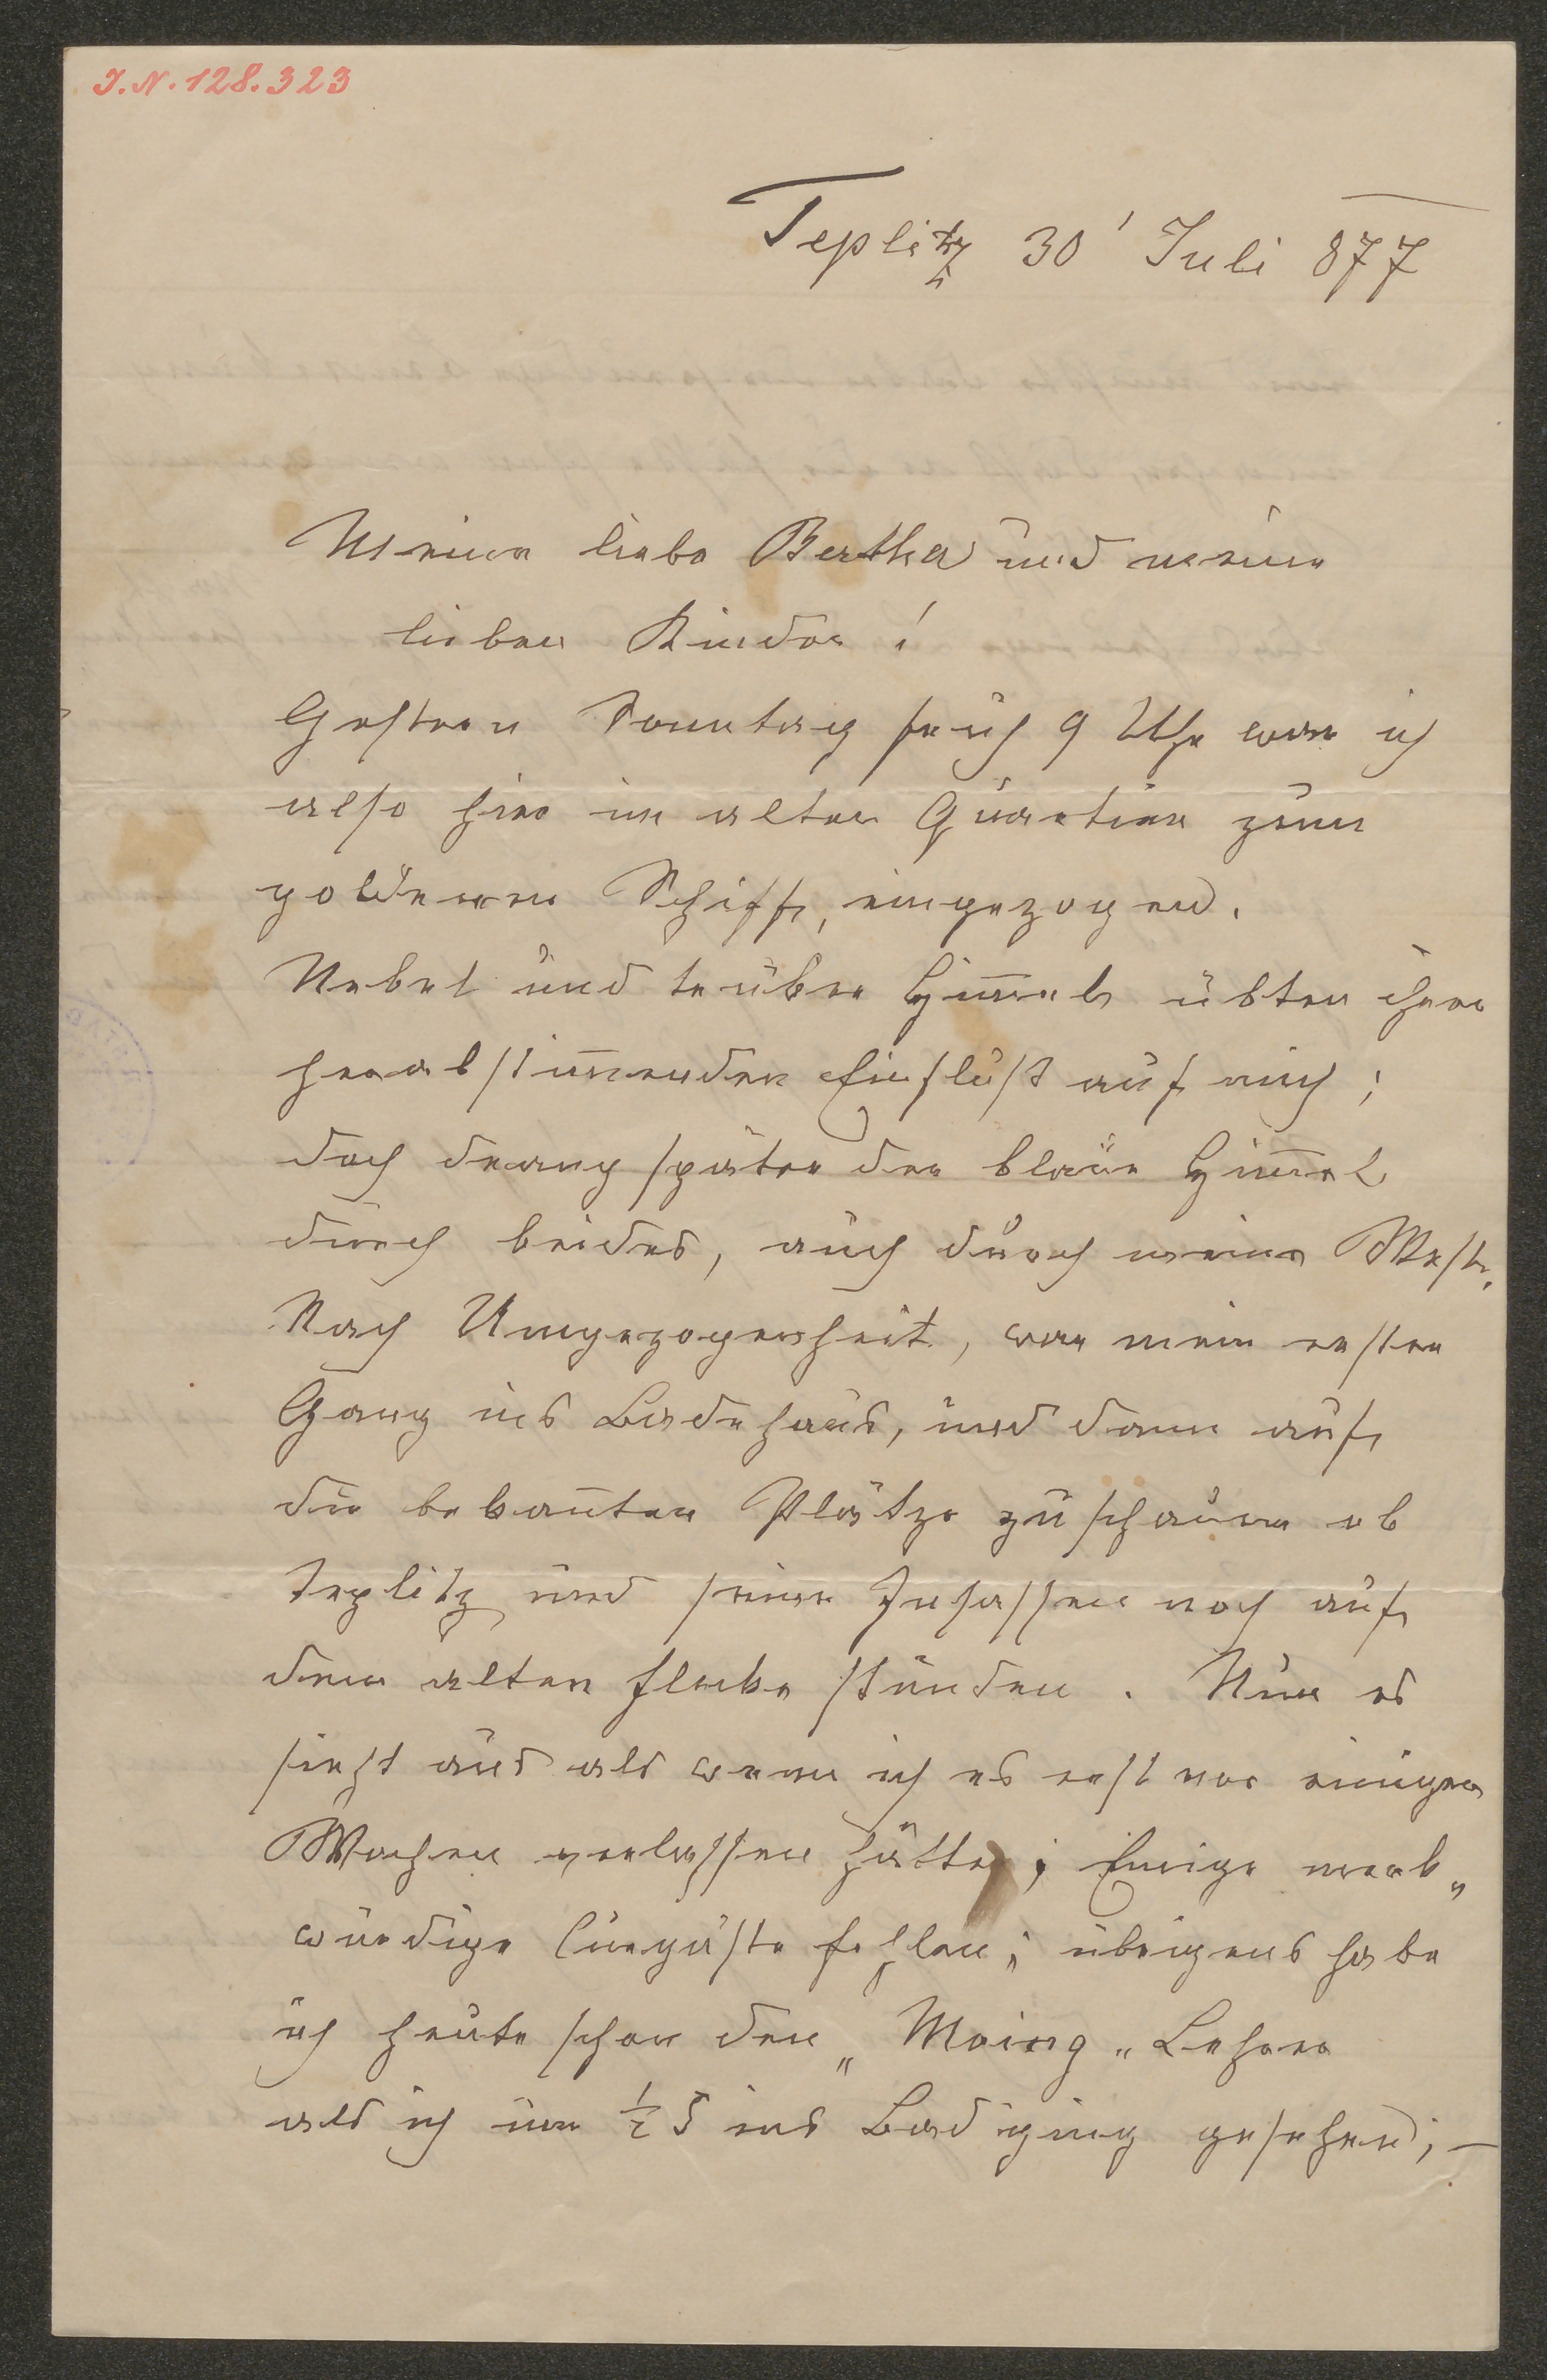 I.N. 128.323
Teplitz 30' Juli 877
Meine liebe Bertha und meine
lieben Kinder!
Gestern Sonntag früh 9 Uhr war ich
also hier im alten Quartier zum
goldenen Schiff, eingezogen.
Nebel und trüber Him̅el übten ihren
herabstim̅enden Einflußt auf mich;
doch drang später der blaue Him̅el
durch beides, auch durch meine Weste,
Nach Umgezogenheit, war mein erster
Gang ins Badehaus, und dann auf
die bekan̅ten Plätze zu schauen ob
Teplitz und seine Insassen noch auf
dem alten Flecke stünden. Nun es
sieht aus als wenn ich es erst vor einigen
Wochen verlassen hätte; Einige merk„
würdige Curgäste fehlen; übrigens habe
ich heute schon den „Moing„ Lehrer
als ich um ½ 5 ins Bad ging gesehen; —